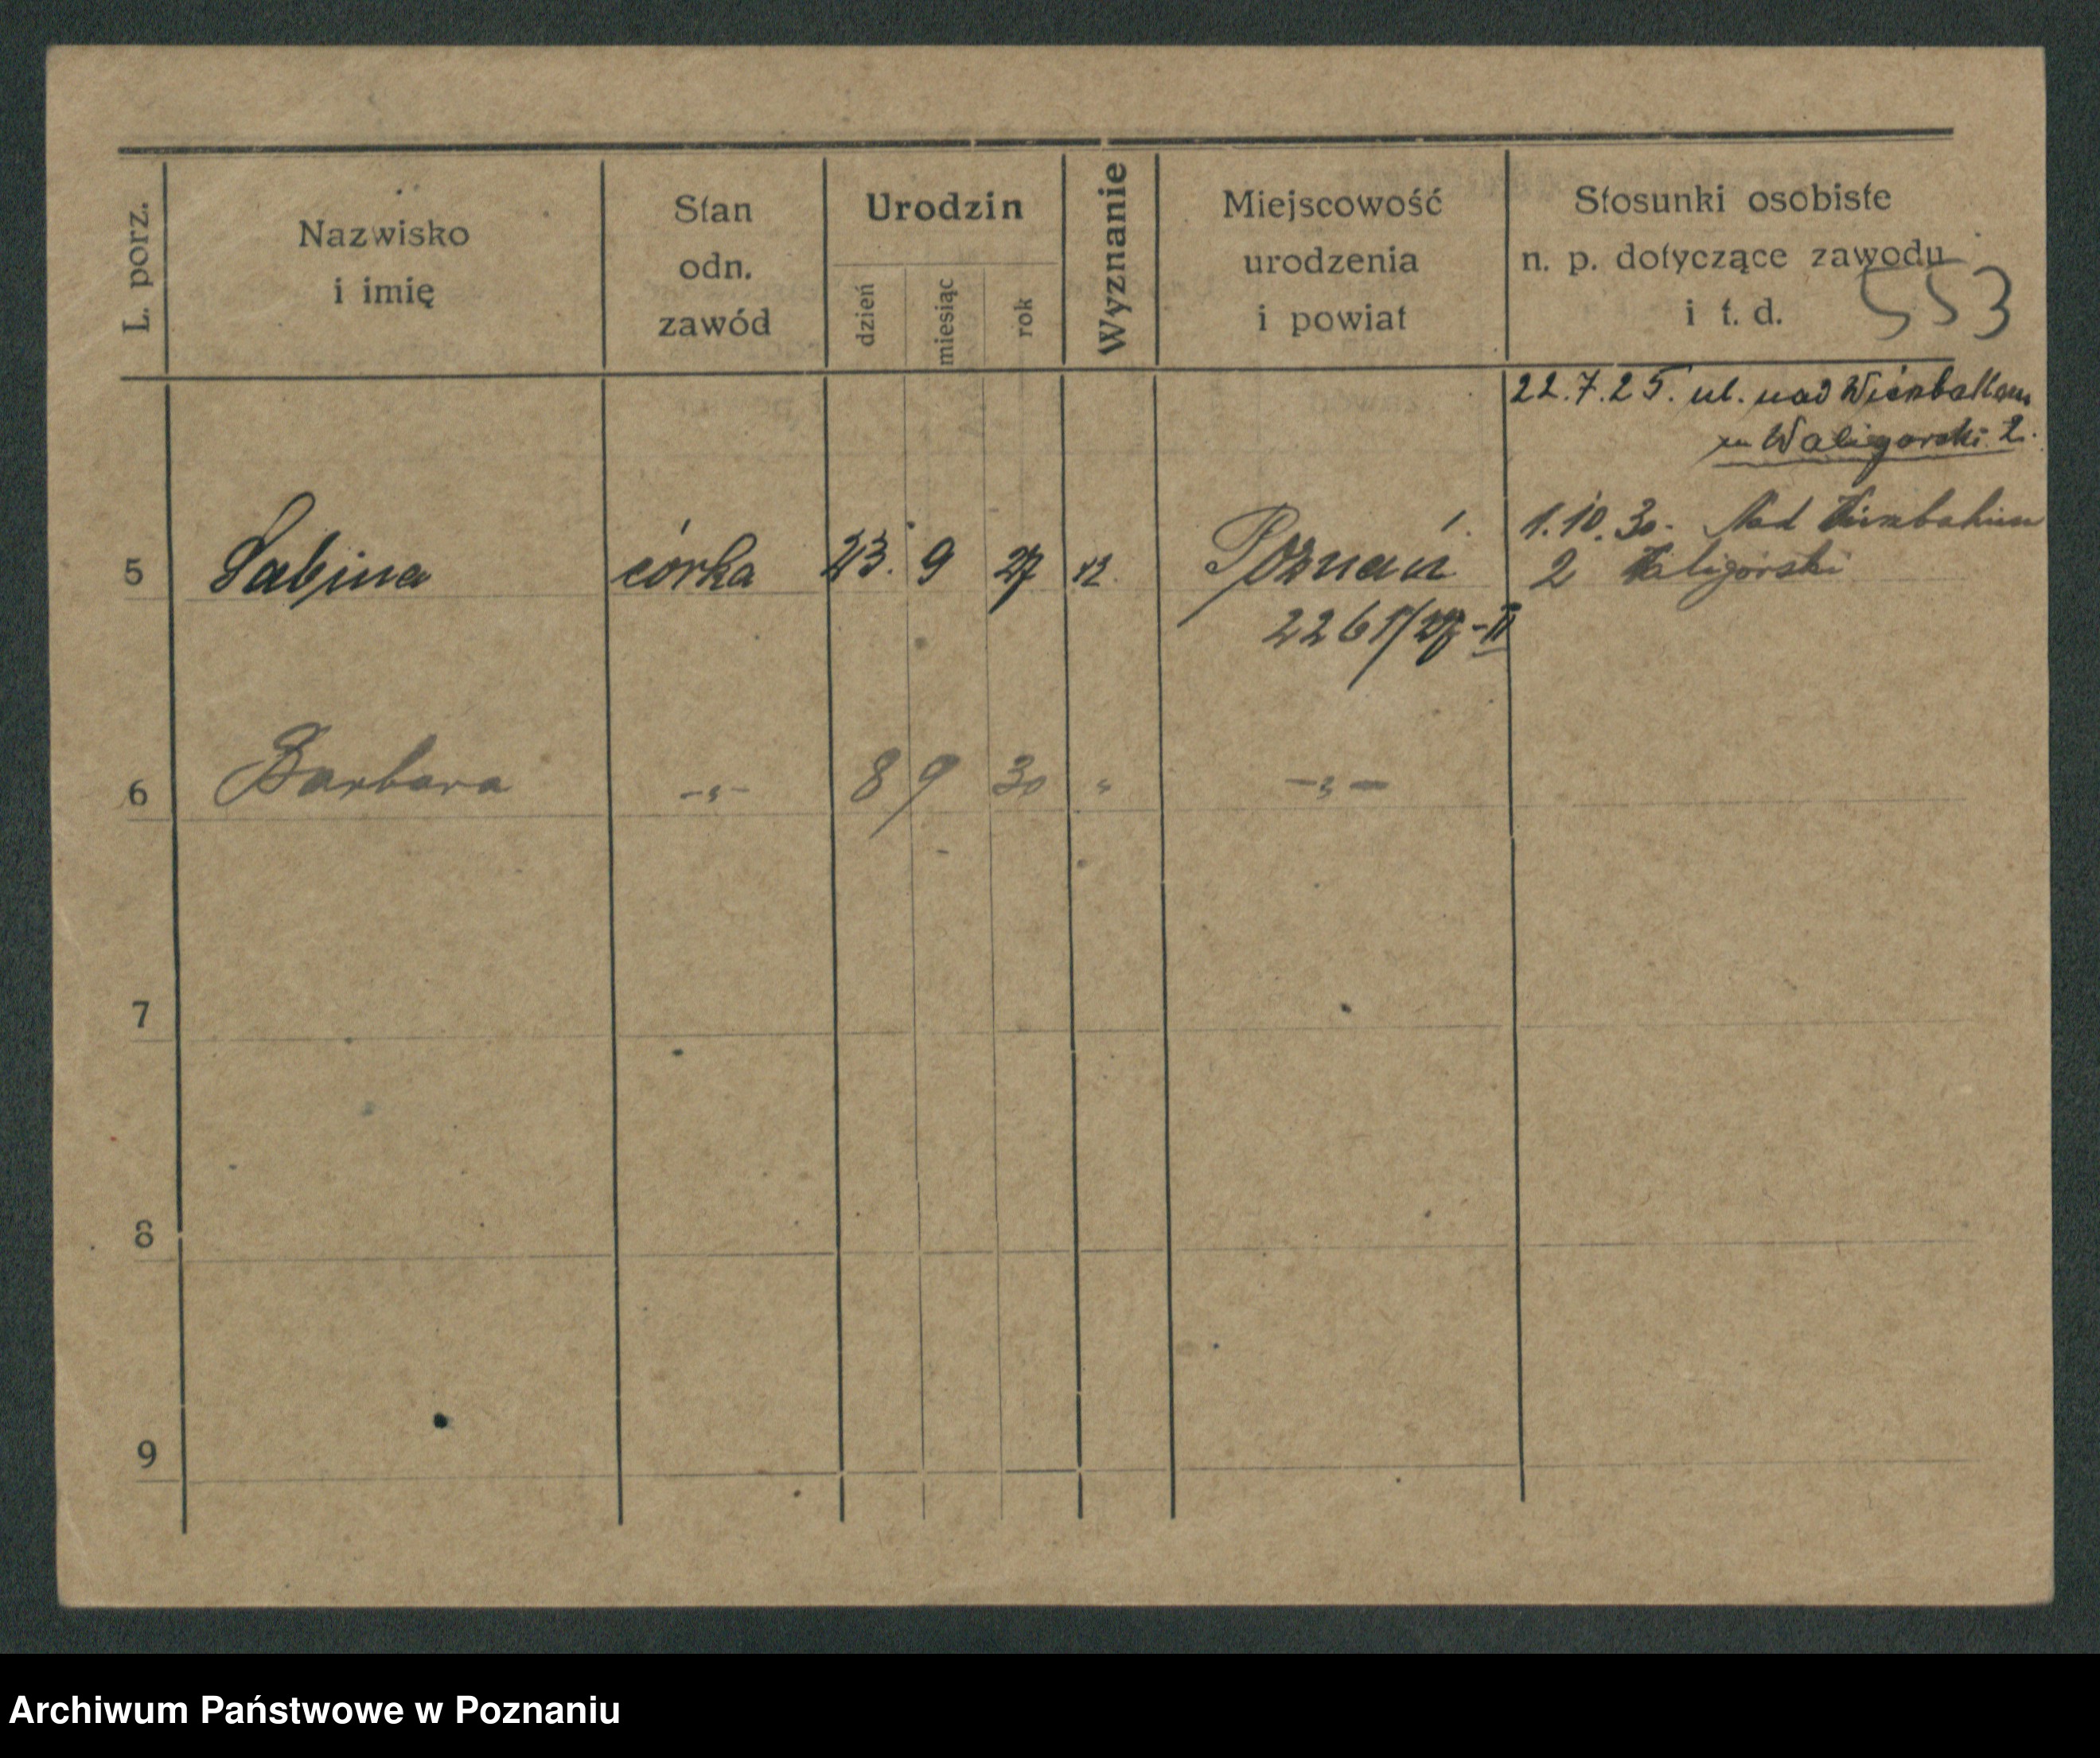 L. porz.
Nazwisko
i imię
Stan
odn.
zawód
Urodzin
dzień
miesiąc
rok
Wyznanie
Miejscowość
urodzenia
i powiat
Stosunki osobiste
n. p. dotyczące zawodu
i t. d.
553
22.7.25. ul. nad Wierzbakiem
Waligorski 2.
1.10.30. Nad Wierzbakiem
2 Waligórski
5 Sabina córka 23. 9 27 Poznań
2261/27-II
6 Barbara -„- 8 9 30 „ -„-
7
8
9
Archiwum Państwowe w Poznaniu